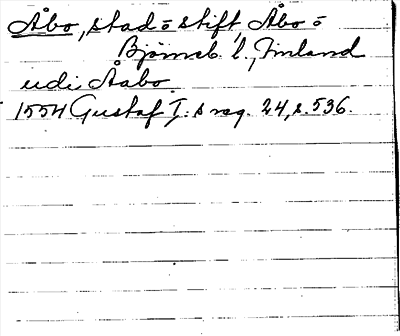 Åbo, stad ō stift, Åbo ō
Björneb. l., Finland
udi Åabo.
1554 Gustaf I:s reg. 24, s. 536.